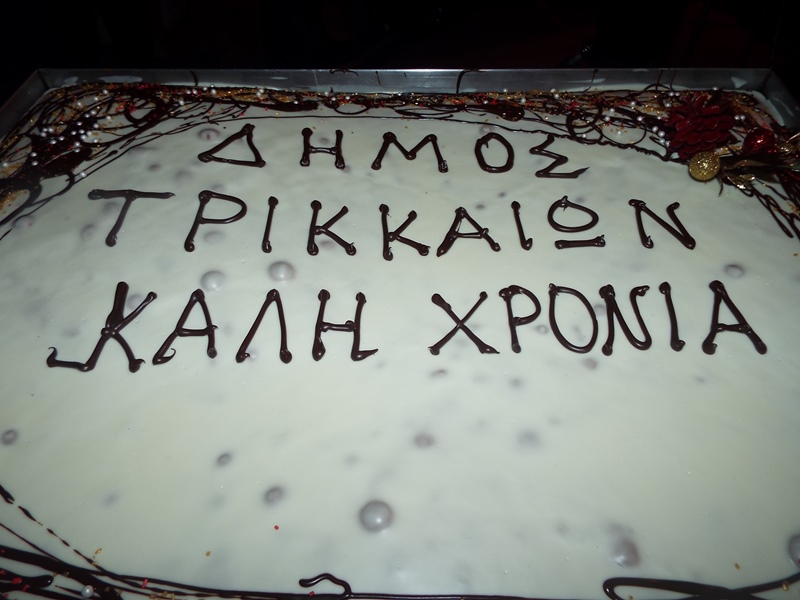 ΔΗΜΟΣ
ΤΡΙΚΚΑΙΩΝ
ΚΑΛΗ ΧΡΟΝΙΑ